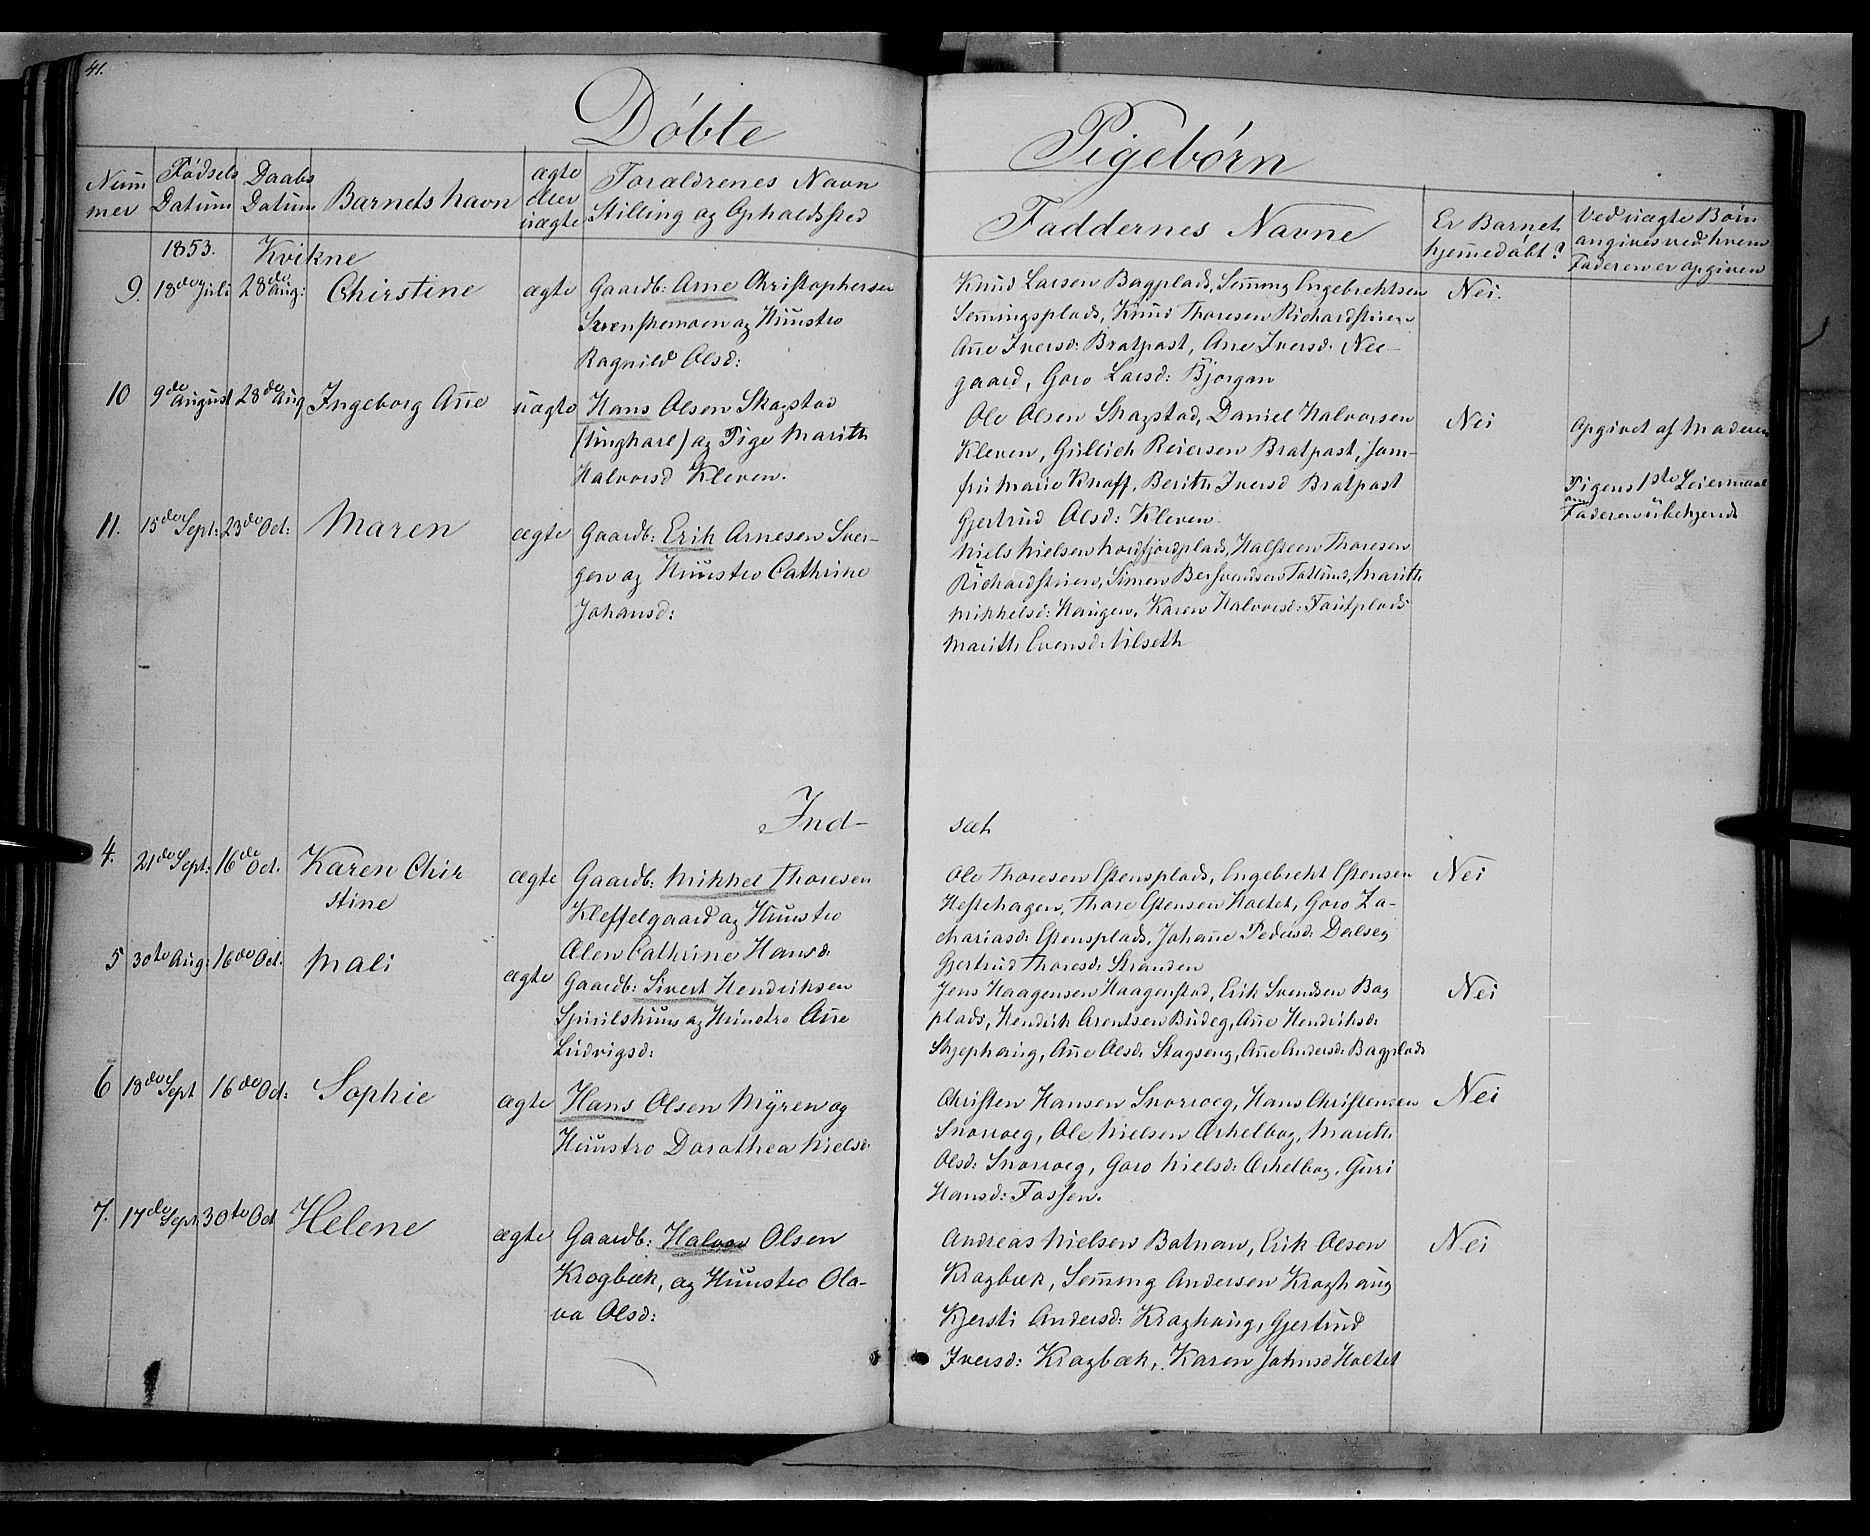 41.
Døbte
Pigebørn
Num
mer
Fødsels
Datum
Daabs
Datum
Barnets Navn
ægte
eller
uægte
Forældrenes Navn
Stilling og Opholdssted
Faddernes Navne
Er Barnet
hjemmedøbt?
Ved uægte Børn
angives ved hvem
Faderen er opgiven
1853. Kvikne
9. 18de Juli 28de Aug: Chirstine ægte Gaardb: Arne Christophersen
Svenskemoen og Hustro
Ragnild Olsd:
Knud Larsen Bagplads, Seming Engebrektsen
Semingsplads, Knud Thoresen Richardstuen
Añe Iversd: Bratpast, Añe Iversd: Nee-
gaard, Goro Larsd: Bjørgan
Nei.
10 9de August 28de Aug Ingeborg Añe uægte Hans Olsen Skagstad
(Ungkarl) og Pige Marith
Halvorsd Kleven.
Ole Olsen Skagstad, Daniel Halvorsen
Kleven, Gullich Reiersen Bratpast, Jom-
fru Marie Knoff, Berith Iversd Bratpast
Gjertrud Olsd: Kleven
Nei
Opgivet af Moderen
Pigens 1ste Leiermaal
om Faderen ubekjendt
11. 15de Sept: 23de Oct: Maren ægte Gaardb: Erik Arnesen Sver-
gen og Hustro Cathrine
Johansd:
Niels Nielsen Nordfjordplads, Halsteen Thoresen
Richardstuen, Simen Bersvendsen Tallund, Marith
Mikkelsd: Haugen, Karen Halvorsd: Foutplads
Marith Evensd: Vilseth
Ind-
set
4. 21de Sept: 16de Oct. Karen Chir
stine
ægte Gaardb: Mikkel Thoresen
Kleffelgaard og Hustro
Alen Cathrine Hansd:
Ole Thoresen Estensplads, Engebrekt Estensen
Hestehagen, Thore Estensen Holtet, Goro Za-
chariasd: Estensplads, Johañe Pedersd: Dalseg
Gjertrud Thoresd: Stranden
Nei
5 30te Aug: 16de Oct: Mali ægte Gaardb: Sivert Hendriksen
Spirilshuus og Hustro Añe
Ludvigsd:
Jens Haagensen Haagenstad, Erik Svendsen Bag
plads, Hendrik Arentsen Budeg, Añe Hendriksd:
Skjephaug, Añe Olsd: Stagseng, Añe Andersd: Bagplads
Nei
6 18de Sept 16de Oct: Sophie ægte Hans Olsen Myren og
Hustro Dorothea Nielsd:
Christen Hansen Snoroeg, Hans Christensen
Snoroeg, Ole Nielsen Orkelbog, Marith
Olsd: Snoroeg, Goro Nielsd: Orkelbog, Guri
Hansd: Fossen.
Nei
7. 17de Sept 30te Oct Helene ægte Gaardb: Halvor Olsen
Krogbæk, og Hustro Ola-
va Olsd:
Andreas Nielsen Batnan, Erik Olsen
Krogbæk, Seming Andersen Kroghaug
Kjersti Andersd: Kroghaug, Gjertrud
Iversd: Krogbæk, Karen Johnsd Holtet
Nei